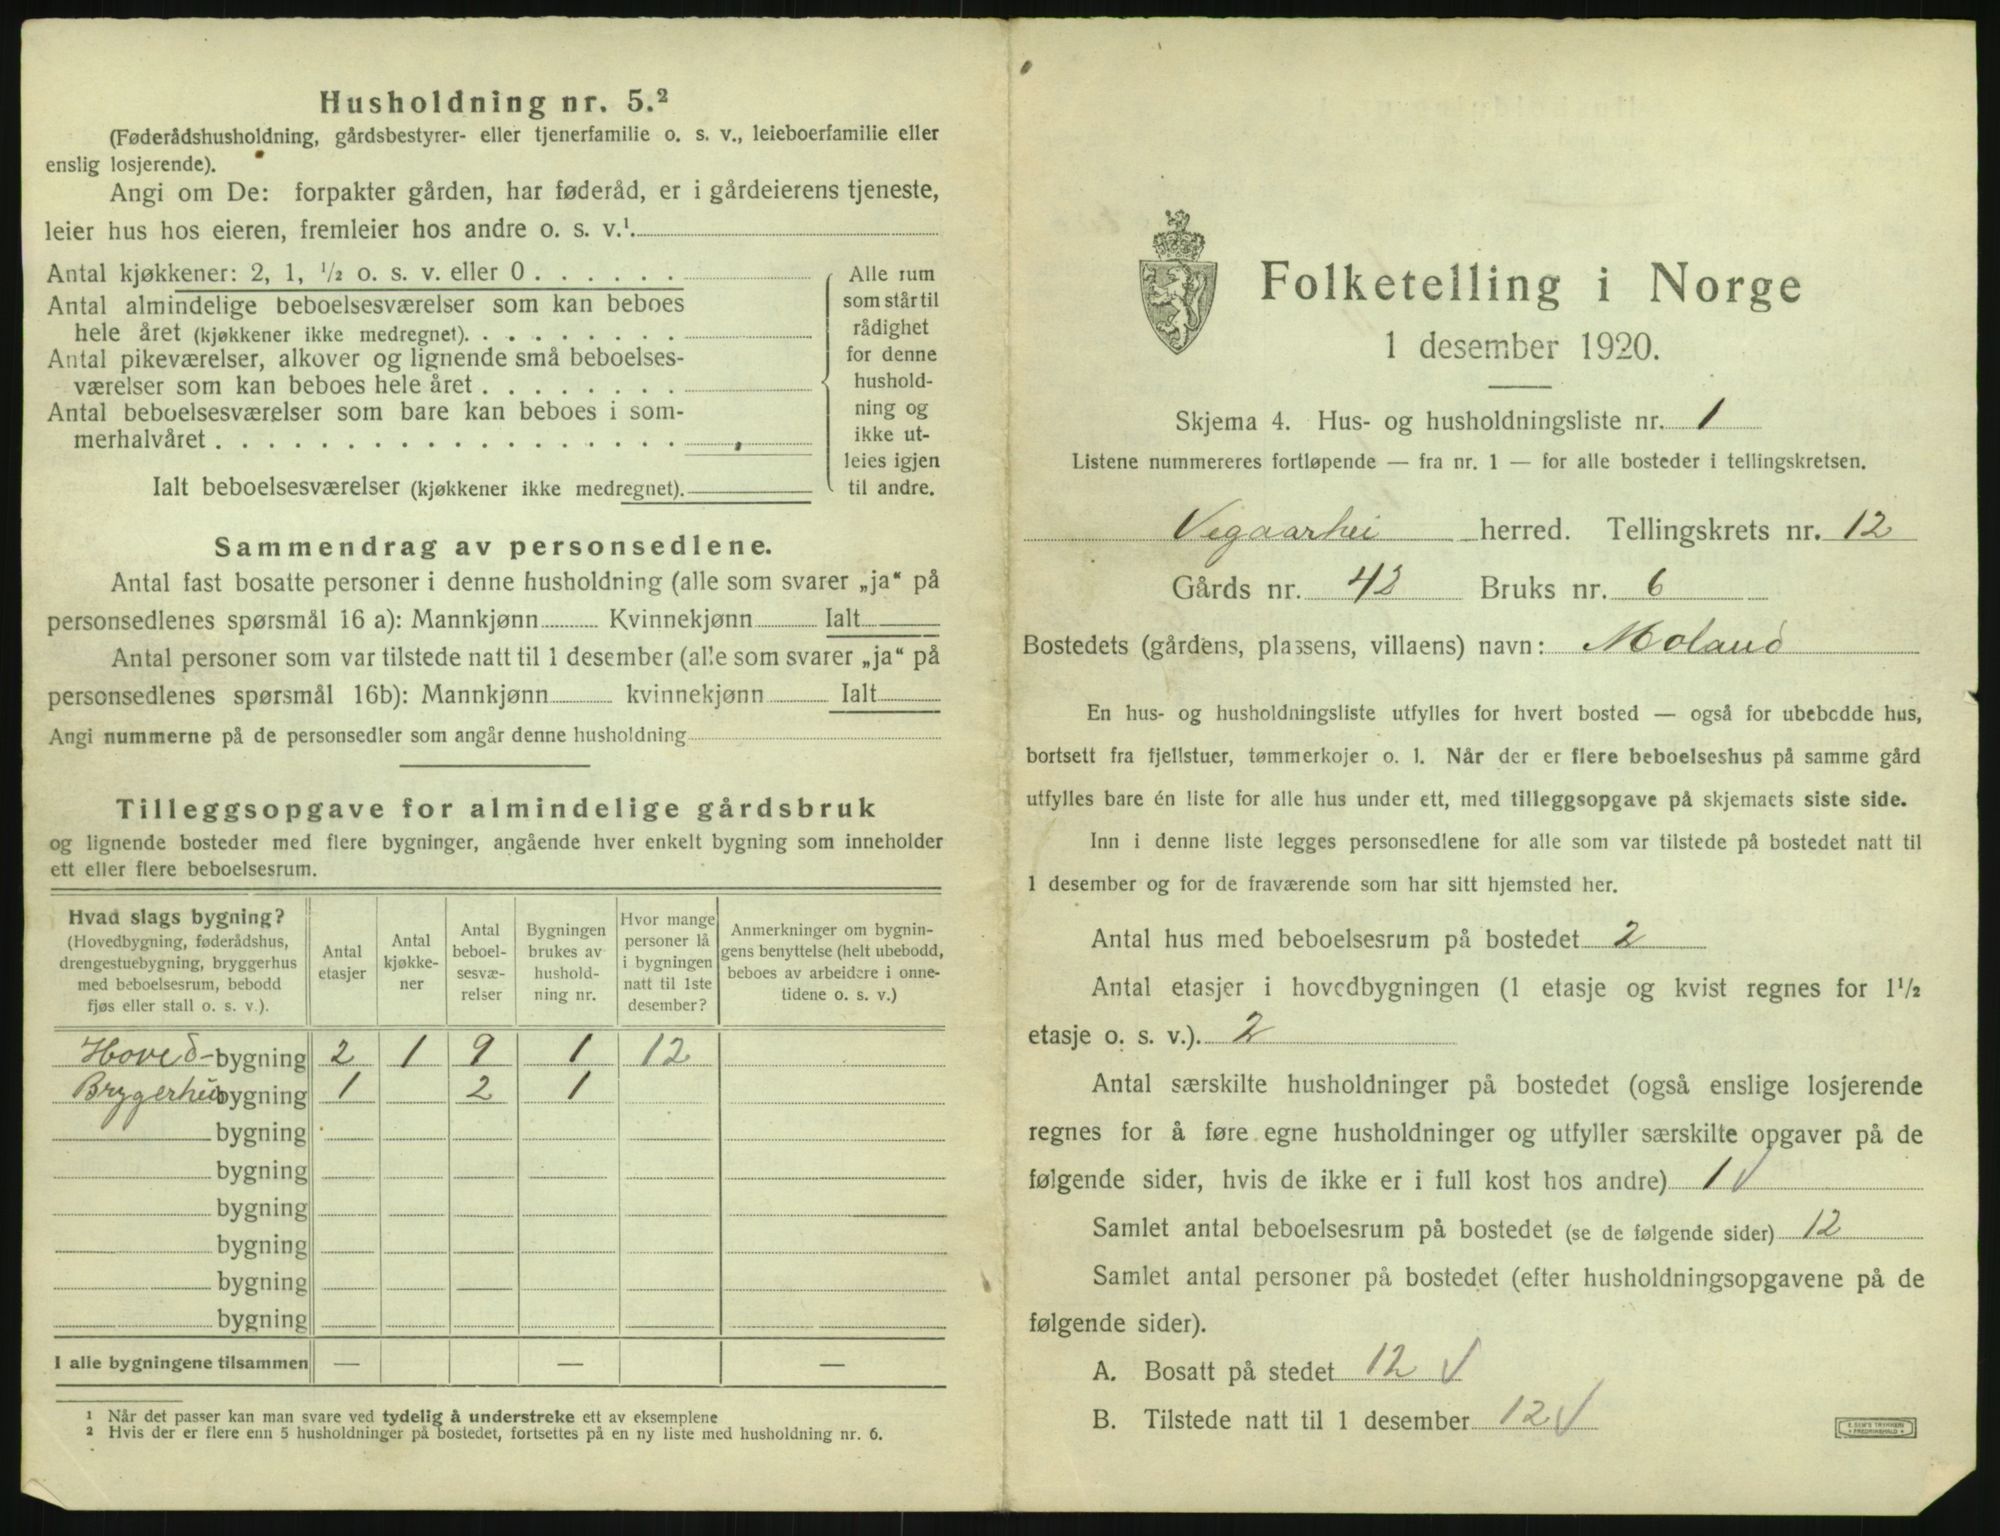 Husholdning nr. 5.²
(Føderådshusholdning, gårdsbestyrer- eller tjenerfamilie o. s. v., leieboerfamilie eller
enslig losjerende).
Angi om De: forpakter gården, har føderåd, er i gårdeierens tjeneste,
leier hus hos eieren, fremleier hos andre o. s. v.¹
Antal kjøkkener: 2, 1, ½ o. s. v. eller 0 . . . . . .
Antal almindelige beboelsesværelser som kan beboes
hele året (kjøkkener ikke medregnet). . . . . . . . .
Antal pikeværelser, alkover og lignende små beboelses-
værelser som kan beboes hele året . . . . . . . .
Antal beboelsesværelser som bare kan beboes i som-
merhalvåret . . . . . . . . . . . . . . . . . .
Ialt beboelsesværelser (kjøkkener ikke medregnet).
Alle rum
som står til
rådighet
for denne
hushold-
ning og
ikke ut-
leies igjen
til andre.
Sammendrag av personsedlene.
Antal fast bosatte personer i denne husholdning (alle som svarer „ja“ på
personsedlenes spørsmål 16 a): Mannkjønn Kvinnekjønn Ialt
Antal personer som var tilstede natt til 1 desember (alle som svarer „ja“ på
personsedlenes spørsmål 16b): Mannkjønn kvinnekjønn Ialt
Angi nummerne på de personsedler som angår denne husholdning
Tilleggsopgave for almindelige gårdsbruk
og lignende bosteder med flere bygninger, angående hver enkelt bygning som inneholder
ett eller flere beboelsesrum.
Hvad slags bygning?
(Hovedbygning, føderådshus,
drengestuebygning, bryggerhus
med beboelsesrum, bebodd
fjøs eller stall o. s. v.).
Antal
etasjer
Antal
kjøkke-
ner
Antal
beboel-
sesvæ-
relser
Bygningen
brukes av
hushold-
ning nr.
Hvor mange
personer lå
i bygningen
natt til 1ste
desember?
Anmerkninger om bygnin-
gens benyttelse (helt ubebodd,
beboes av arbeidere i onne-
tidene o. s. v.)
Hoved-bygning 2 1 9 1 12
Brygerhusbygning 1 2 1
bygning
bygning
bygning
bygning
bygning
bygning
I alle bygningene tilsammen — — —
¹ Når det passer kan man svare ved tydelig å understreke ett av eksemplene
² Hvis der er flere enn 5 husholdninger på bostedet, fortsettes på en ny liste med husholdning nr. 6.
Folketelling i Norge
1 desember 1920.
Skjema 4. Hus- og husholdningsliste nr. 1
Listene nummereres fortløpende — fra nr. 1 — for alle bosteder i tellingskretsen.
Vegaarhei herred. Tellingskrets nr. 12
Gårds nr. 42 Bruks nr. 6
Bostedets (gårdens, plassens, villaens) navn: Moland
En hus- og husholdningsliste utfylles for hvert bosted — også for ubebodde hus,
bortsett fra fjellstuer, tømmerkojer o. l. Når der er flere beboelseshus på samme gård
utfylles bare én liste for alle hus under ett, med tilleggsopgave på skjemaets siste side.
Inn i denne liste legges personsedlene for alle som var tilstede på bostedet natt til
1 desember og for de fraværende som har sitt hjemsted her.
Antal hus med beboelsesrum på bostedet 2
Antal etasjer i hovedbygningen (1 etasje og kvist regnes for 1½
etasje o. s. v.). 2
Antal særskilte husholdninger på bostedet (også enslige losjerende
regnes for å føre egne husholdninger og utfyller særskilte opgaver på de
følgende sider, hvis de ikke er i full kost hos andre) 1 √
Samlet antal beboelsesrum på bostedet (se de følgende sider) 12
Samlet antal personer på bostedet (efter husholdningsopgavene på de
følgende sider).
A. Bosatt på stedet 12 √
B. Tilstede natt til 1 desember 12 √
E. SEM'S TRYKKERI
FREDRIKSHALD